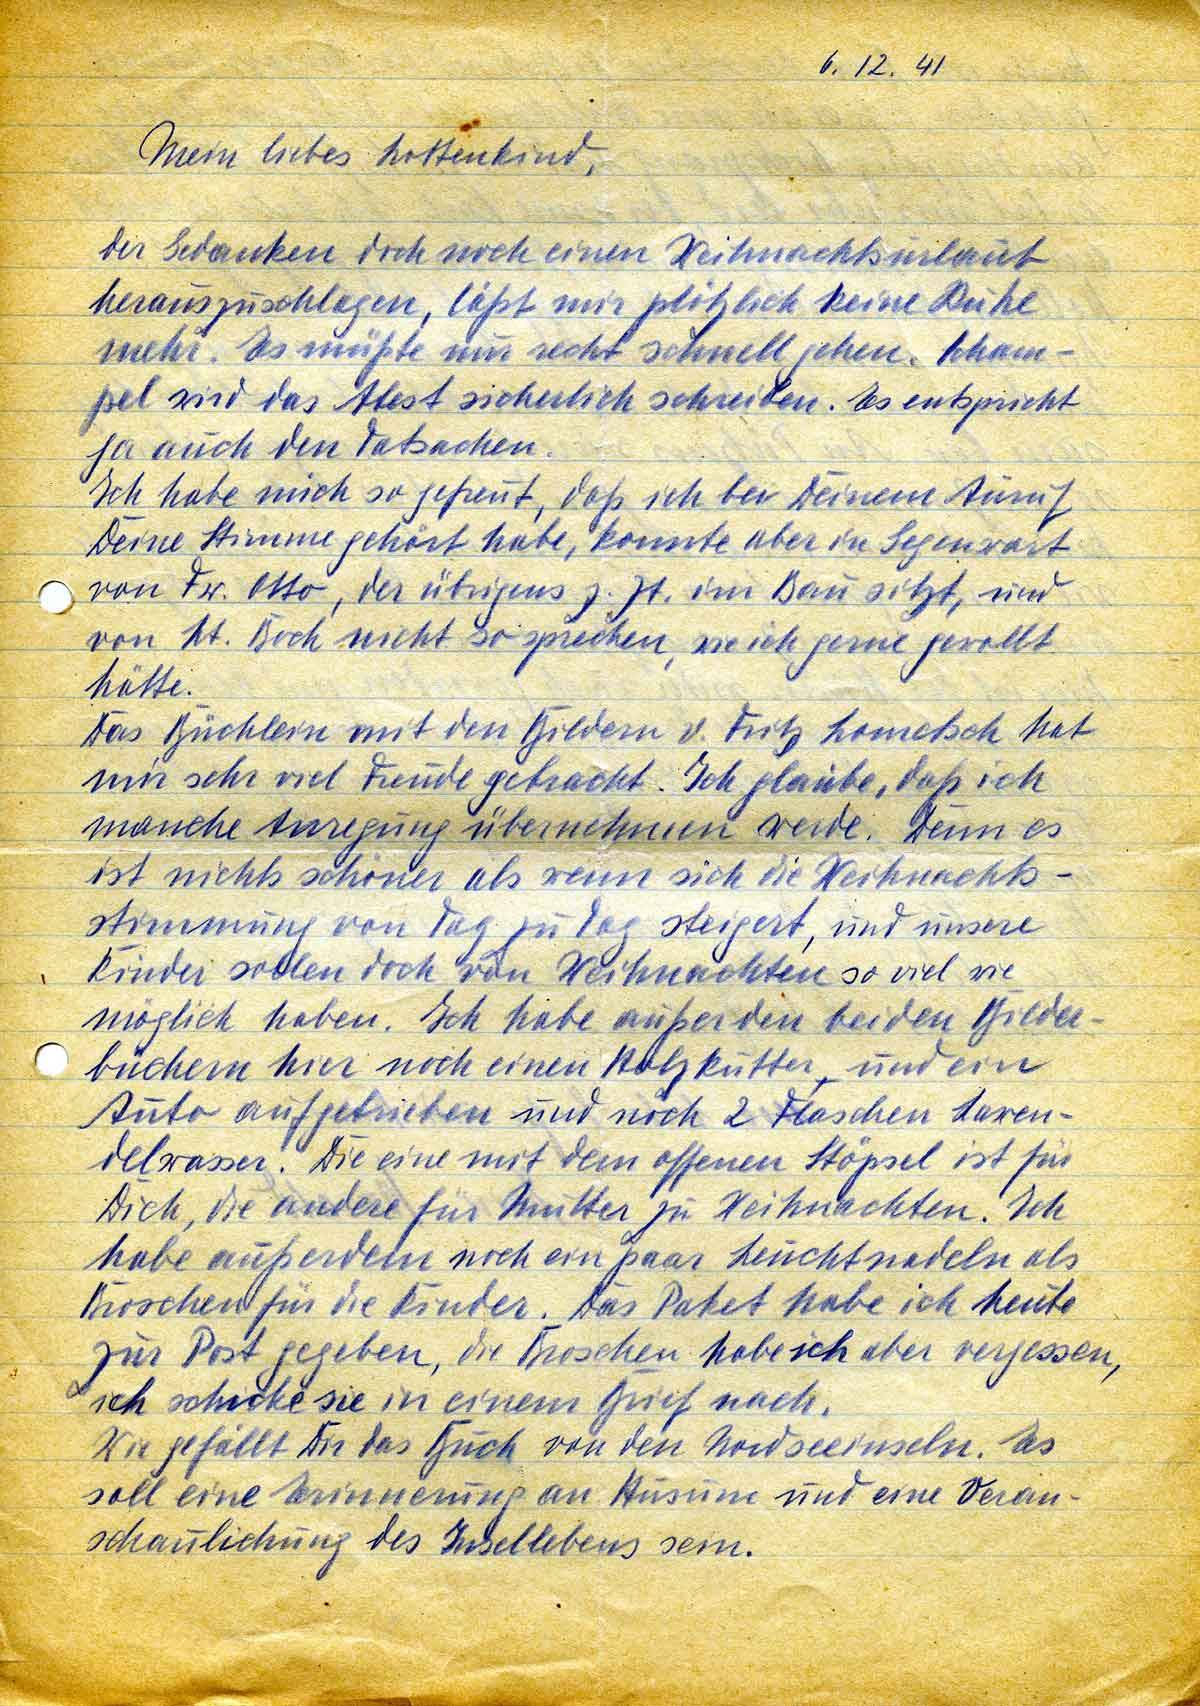 6. 12. 41
Mein liebes Lottenkind,
Der Gedanken doch noch einen Weihnachtsurlaub
herauszuschlagen, läßt mir plötzlich keine Ruhe
mehr. Es müßte nur recht schnell gehen. Scham-
pel wird das Atest sicherlich schreiben. Es entspricht
ja auch den Tatsachen.
Ich habe mich so gefreut, daß ich bei Deinem Anruf
Deine Stimme gehört habe, konnte aber in Gegenwart
von Fw. Otto, der übrigens z. Zt. im Bau sitzt, und
von Lt. Boch nicht so sprechen, wie ich gerne gewollt
hätte.
Das Büchlein mit den Bildern v. Fritz Lometsch hat
mir sehr viel Freude gebracht. Ich glaube, daß ich
manche Anregung übernehmen werde. Denn es
ist nichts schöner als wenn sich die Weihnachts-
stimmung von Tag zu Tag steigert, und unsere
Kinder sollen doch von Weihnachten so viel wie
möglich haben. Ich habe außer den beiden Bilder-
büchern hier noch einen Holzkutter, und ein
Auto aufgetrieben und noch 2 Flaschen Laven-
delwasser. Die eine mit dem offenen Stöpsel ist für
Dich, die andere für Mutter zu Weihnachten. Ich
habe außerdem noch ein paar Leuchtnadeln als
Broschen für die Kinder. Das Paket habe ich heute
zur Post gegeben, die Broschen habe ich aber vergessen,
ich schicke sie in einem Brief nach.
Wie gefällt Dir das Buch von den Nordseeinseln. Es
soll eine Erinnerung an Husum und eine Veran-
schaulichung des Insellebens sein.